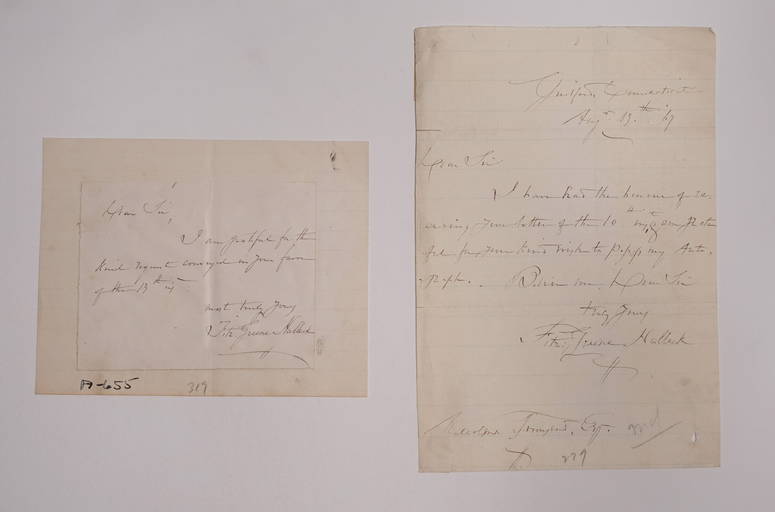 Dear Sir,
I am grateful for the
kind request conveyed in your favor
of the 13th
most truly yours
Fitz Greene Halleck
A-655
319
Guilford, Connecticut
Augt 13th
Dear Sir
I have had the honour of re-
ceiving your letter of the 10th & am grate
ful for your kind wish to possess my Auto-
graph. Believe me, Dear Sir
truly yours
Fitz Greene Halleck
Townsend, Esq.